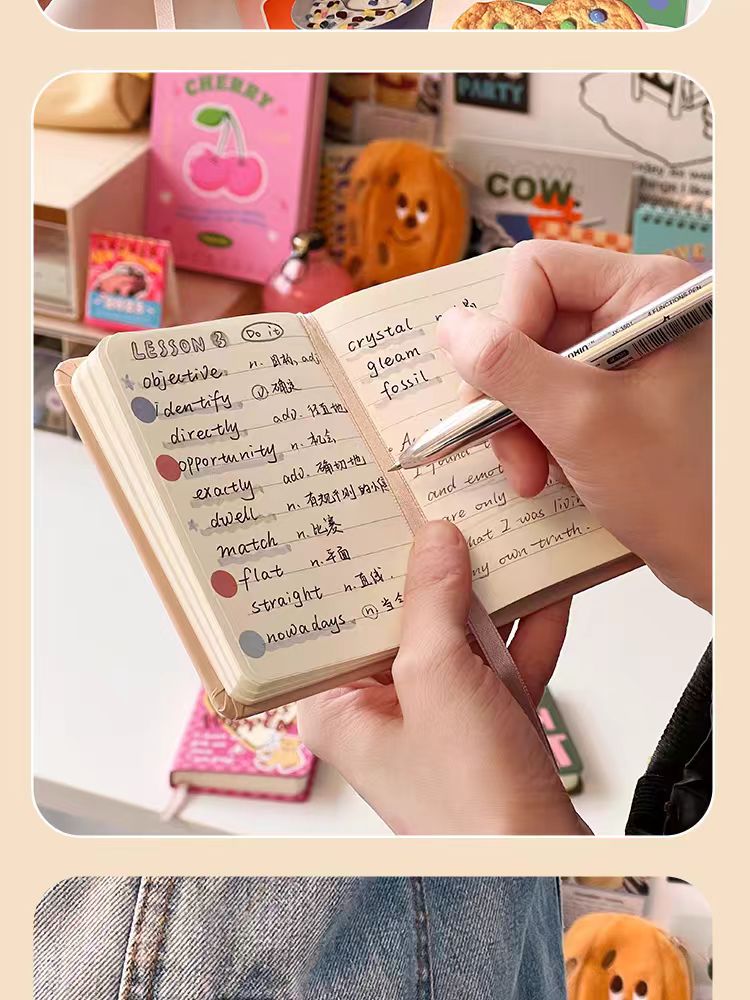 CHERRY
PARTY
COW.
LESSON 3 Do it
objective n. 目标, adj
identify ⓥ 确定
directly adv. 径直地
opportunity n. 机会
exactly adv. 确切地
dwell n.
match n. 比赛
flat n. 平面
straight n. 直线
nowadays ⓝ 当今
crystal
gleam
fossil
I found t
and emot
are only
that I was livin
my own truth.
4 FUNCTIONS PEN